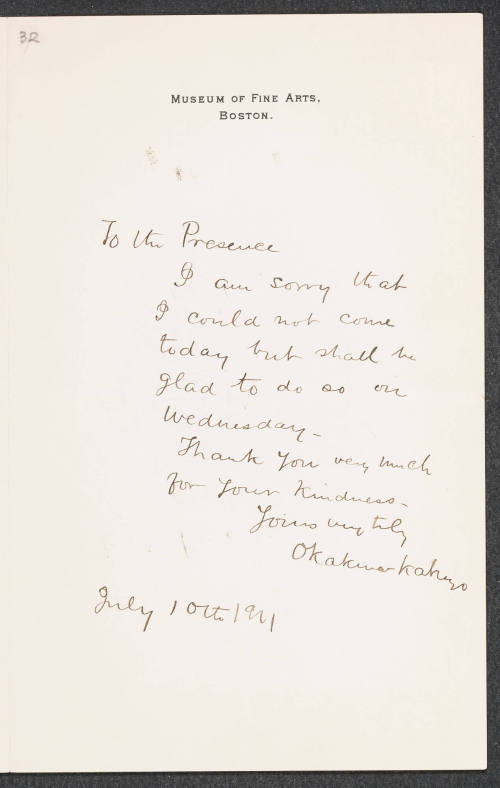 32
MUSEUM OF FINE ARTS,
BOSTON.
To the Presence
I am sorry that
I could not come
today but shall be
glad to do so on
Wednesday -
Thank you very much
for your Kindness -
Yours very truly
Okakura-Kakuzo
July 10th 1911